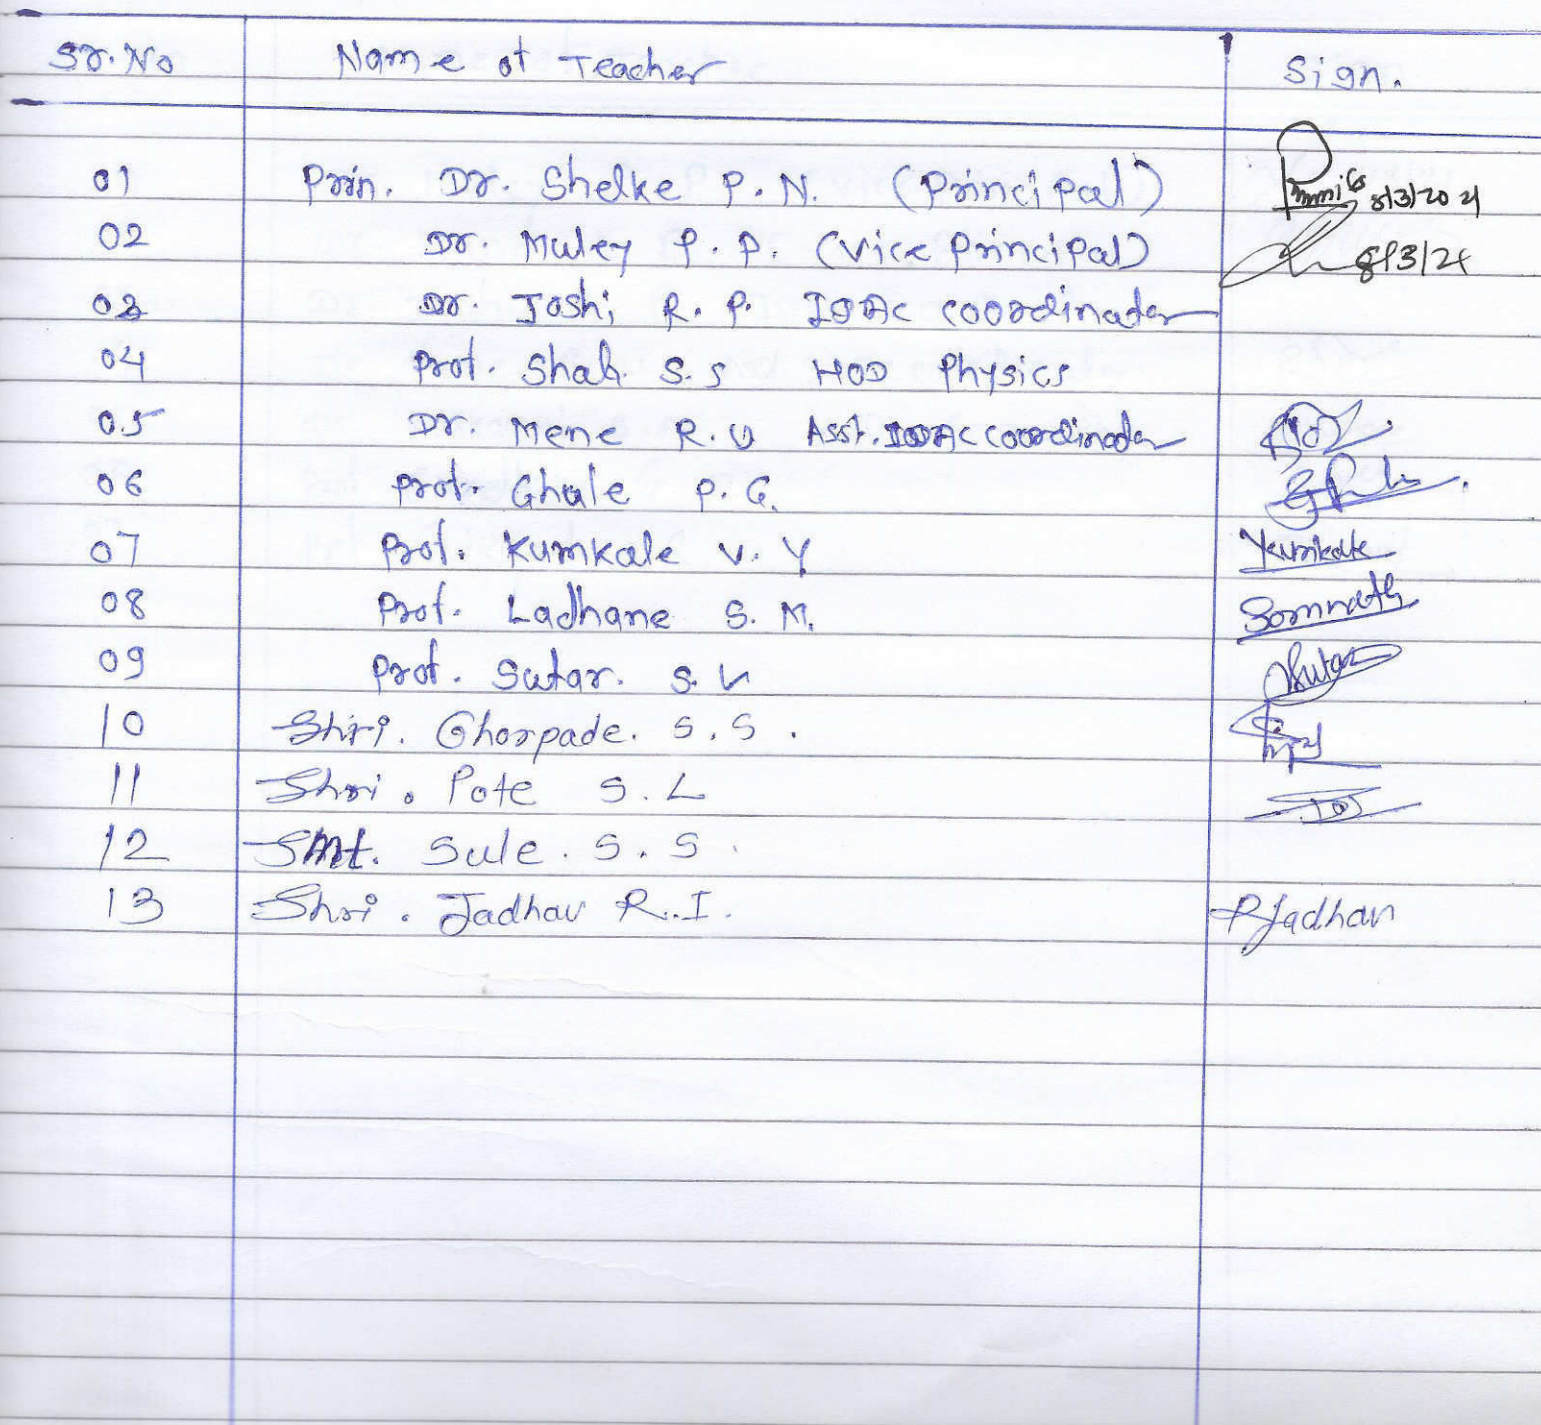 Sr.No Name of Teacher Sign.
01 Prin. Dr. Shelke P.N. (Principal) 8/3/2021
02 Dr. Muley P.P. (Vice Principal) 8/3/21
03 Dr. Joshi R.P. IQAC Coordinator
04 Prof. Shah. S.S HOD Physics
05 Dr. Mene R.U Asst. IQAC Coordinator
06 Prof. Ghule P.G.
07 Prof. Kumkale V.Y Ykumkale
08 Prof. Ladhane S.M. Somnath
09 Prof. Sutar. S.V Sutar
10 Shri. Ghorpade. S.S.
11 Shri. Pote S.L
12 Smt. Sule. S.S.
13 Shri. Jadhav R.I. RJadhav